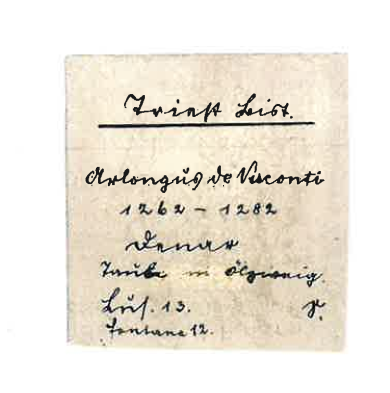 Triest Bist.
Arlongus de Visconti
1262 – 1282
Denar
Taube m Ölzweig.
Lus. 13.
Fontana 12.